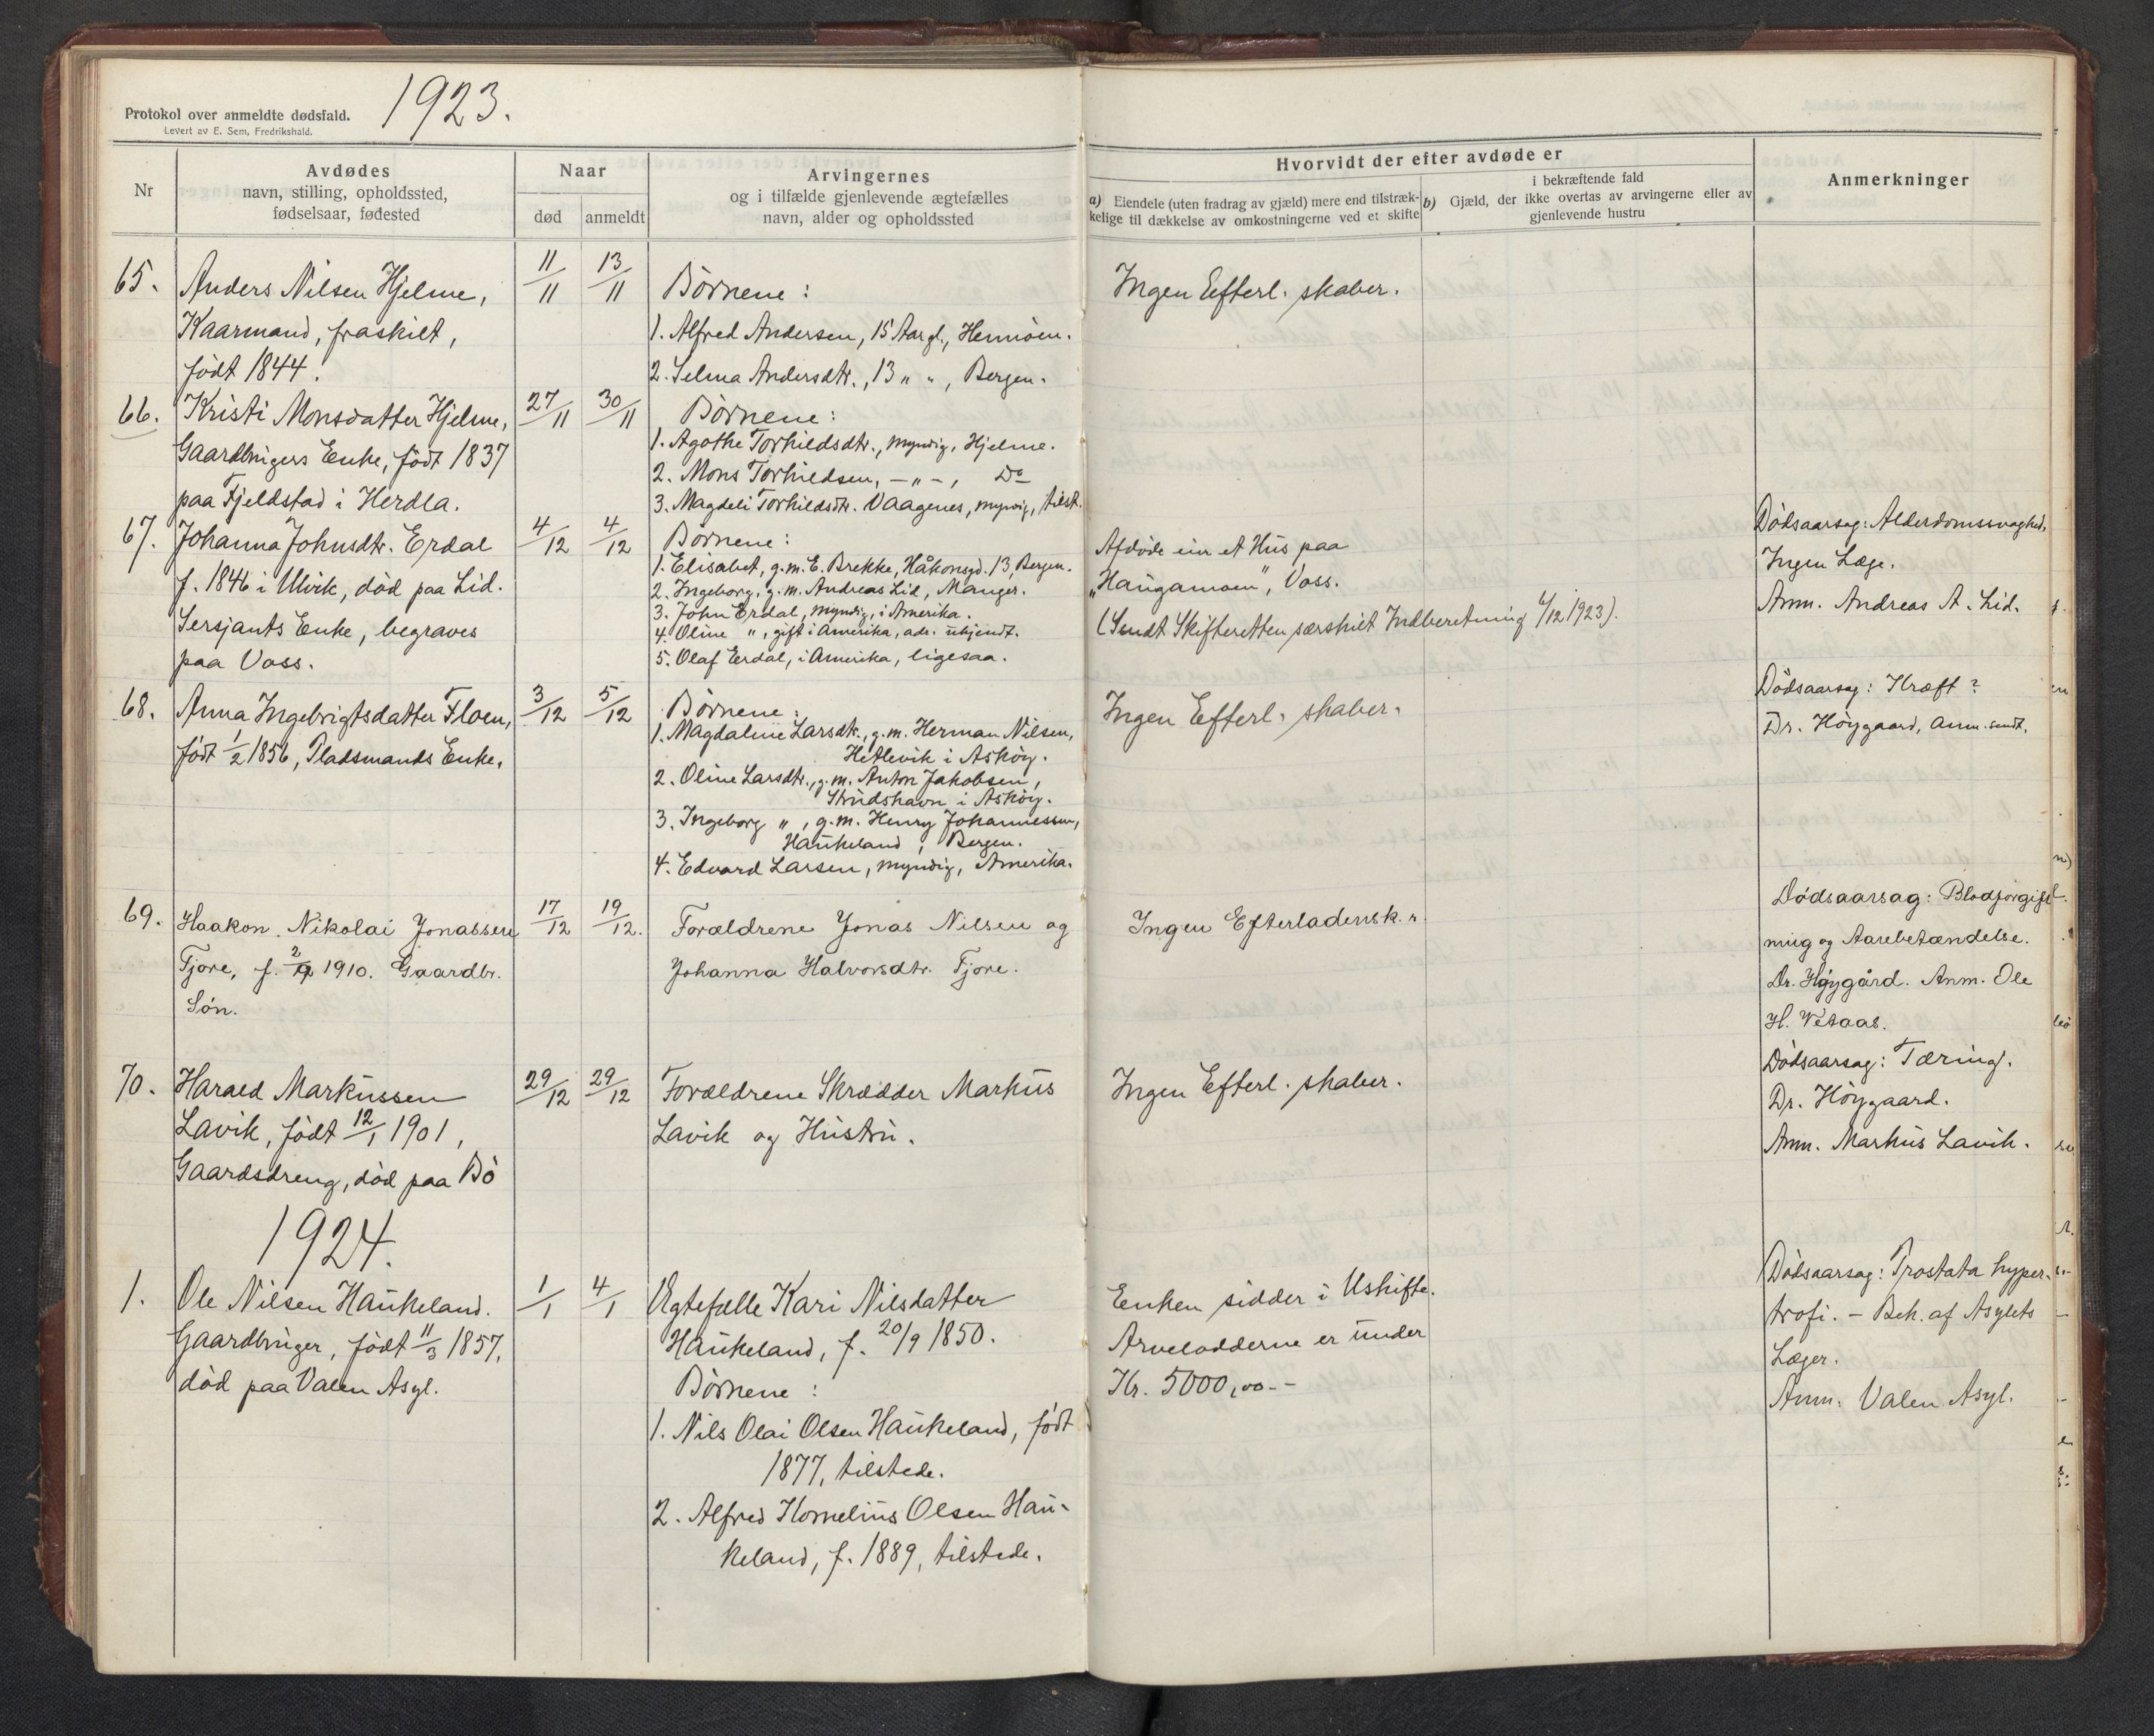 Protokol over anmeldte dødsfald.
Levert av E. Sem, Fredrikshald.
1923.
Nr
Avdødes
navn, stilling, opholdssted,
fødselsaar, fødested
Naar
død
anmeldt
Arvingernes
og i tilfælde gjenlevende ægtefælles
navn, alder og opholdssted
Hvorvidt der efter avdøde er
a) Eiendele (uten fradrag av gjæld) mere end tilstræk-
kelige til dækkelse av omkostningerne ved et skifte
i bekræftende fald
b) Gjæld, der ikke overtas av arvingerne eller av
gjenlevende hustru
Anmerkninger
65.
Anders Nilsen Hjelme,
Kaarmand, fraskilt,
født 1844.
11/11
13/11
Børnene:
1. Alfred Andersen, 15 Aar gl., Hernöen.
2. Selma Andersdtr., 13 " ", Bergen.
Ingen Efterl. skaber.
66.
Kristi Monsdatter Hjelme,
Gaardbrugers Enke, født 1837
paa Fjeldstad i Herdla.
27/11
30/11
Børnene:
1. Agathe Torkildsdtr., myndig, Hjelme.
2. Mons Torkildsen, -"-, Do
3. Magdeli Torkildsdtr. Vaagenes, myndig, tilst.
67.
Johanna Johnsdtr. Erdal
f. 1846 i Ulvik, død paa Lid.
Sersjants Enke, begraves
paa Voss.
4/12
4/12
Børnene:
1. Elisabet, g.m. E. Brekke, Håkonsgd. 13, Bergen.
2. Ingeborg, g.m. Andreas Lid, Manger.
3. John Erdal, myndig, i Amerika.
4. Oline ", gift i Amerika, adr. ukjendt.
5. Olaf Erdal, i Amerika, ligesaa.
Afdøde eier et Hus paa
„Haugamoen", Voss.
(Sendt Skifteretten særskilt Indberetning 6/12 1923).
Dödsaarsag: Alderdomssvaghed,
Ingen Læge.
Anm. Andreas A. Lid.
68.
Anna Ingebrigtsdatter Floen,
født 1/2 1856, Pladsmands Enke,
3/12
5/12
Børnene:
1. Magdaline Larsdtr., g.m. Herman Nilsen,
Hetlevik i Asköy.
2. Oline Larsdtr., g.m. Anton Jakobsen,
Strudshavn i Asköy.
3. Ingeborg ", g.m. Henry Johannessen,
Haukeland, Bergen.
4. Edvard Larsen, myndig, Amerika.
Ingen Efterl. skaber.
Dödsaarsag: Kræft?
Dr. Höygaard, Anm. sendt.
69.
Haakon Nikolai Jonassen
Fjore, f. 2/12 1910. Gaardbr.
Søn.
17/12
19/12.
Forældrene Jonas Nilsen og
Johanna Halvorsdtr. Fjore.
Ingen Efterladensk. ".
Dødsaarsag: Blodforgift-
ning og Aarebetændelse.
Dr. Høygård. Anm. Ole
H. Vetaas.
70.
Harald Markussen
Lavik, født 12/1 1901,
Gaardsdreng, död paa Bö
29/12
29/12
Forældrene Skrædder Markus
Lavik og Hustru.
Ingen Efterl. skaber.
Dödsaarsag: Tæring.
Dr. Höygaard.
Anm. Markus Lavik.
1924.
1.
Ole Nilsen Haukeland.
Gaardbruger, født 11/3 1857,
död paa Valen Asyl.
1/1
4/1
Ægtefælle Kari Nilsdatter
Haukeland, f. 20/9 1850.
Børnene:
1. Nils Olai Olsen Haukeland, født
1877, tilstede.
2. Alfred Kornelius Olsen Hau-
keland, f. 1889, tilstede.
Enken sidder i Uskifte.
Arvelodderne er under
Kr. 5000,00.-
Dödsaarsag: Prostata hyper-
trofi. - Beh. af Asylets
Læger.
Anm: Valen Asyl.